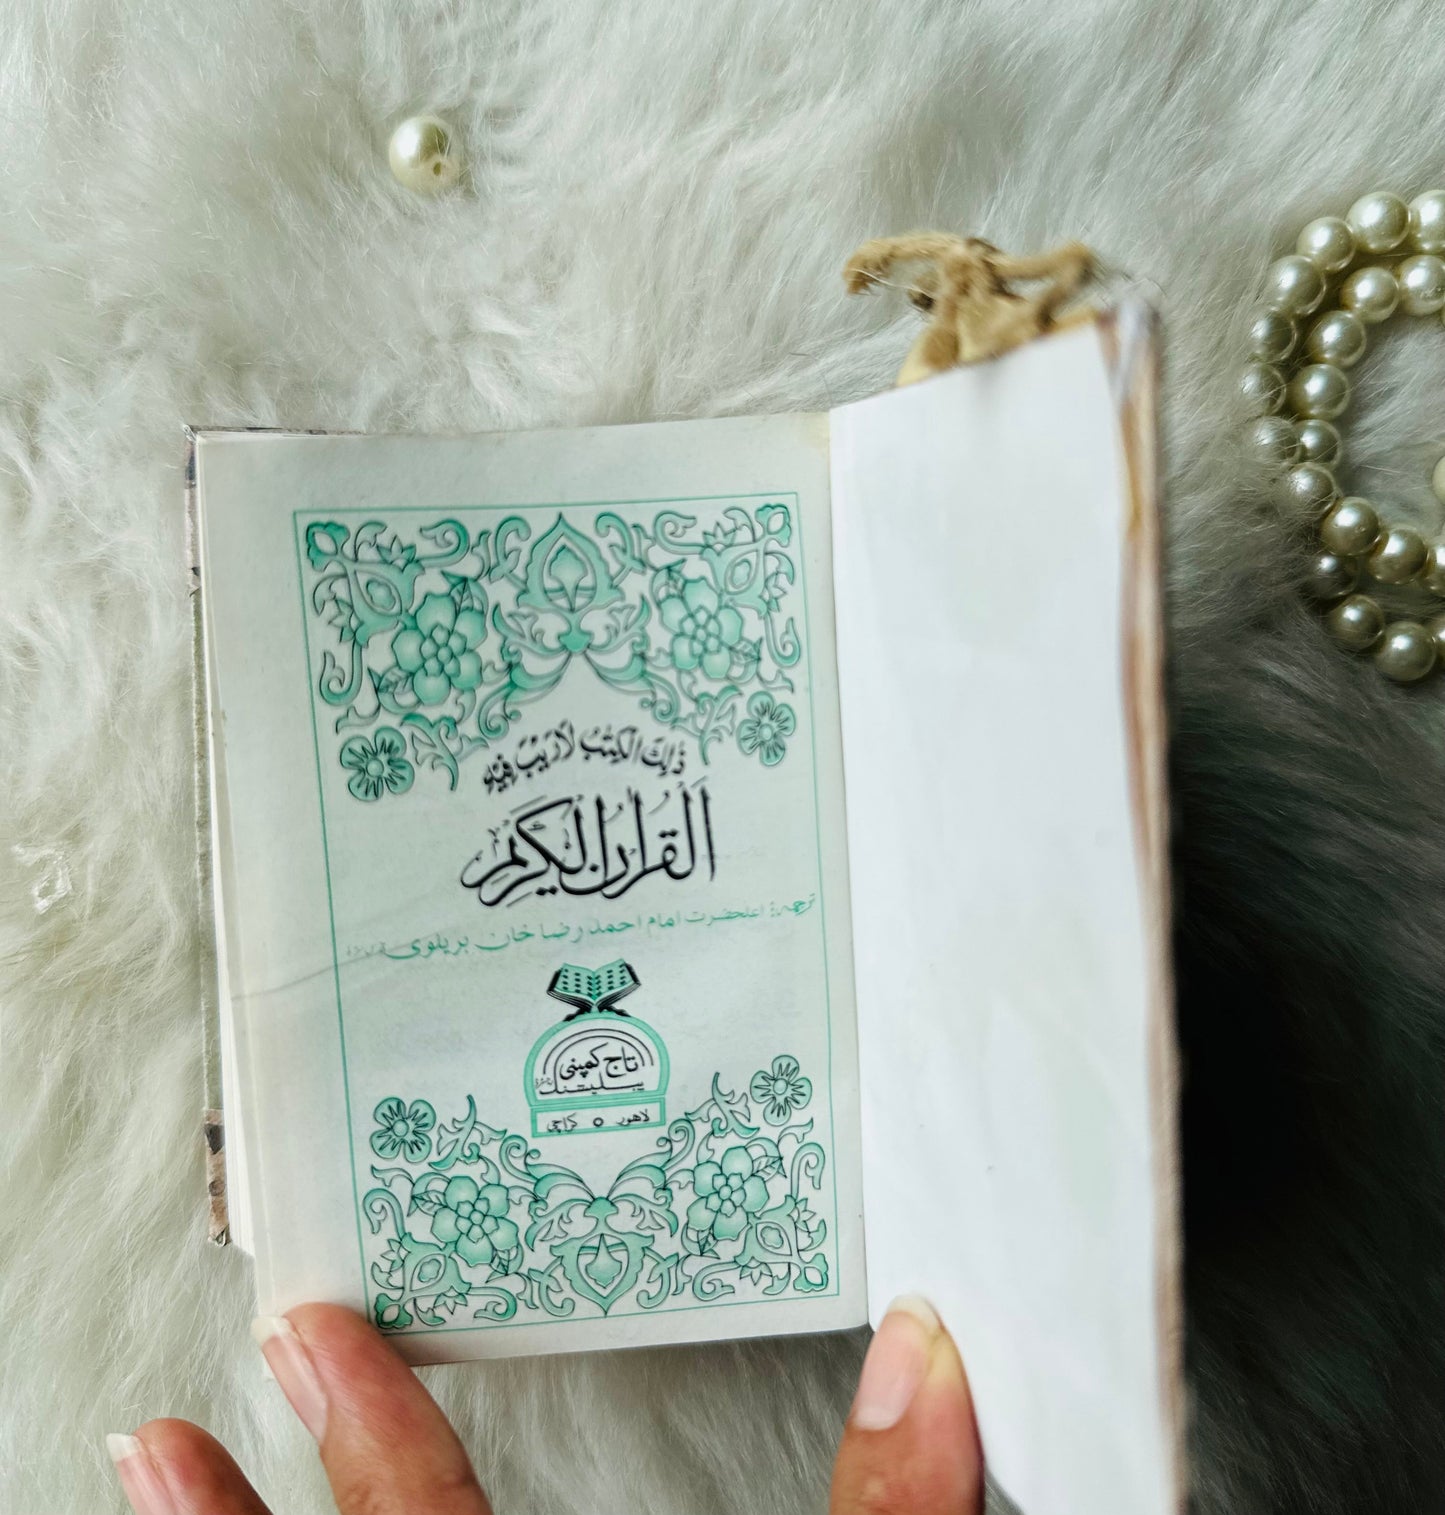 ذٰلِكَ الْكِتٰبُ لَا رَيْبَ فِيْهِ
اَلْقُرْاٰنُ الْكَرِيْم
ترجمہ: اعلحضرت امام احمد رضا خان بریلوی
تاج کمپنی
پبلیشنگ
لاهور ○ کراچی